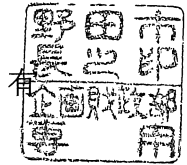 野田市
長之印
有
企画財政部
専用